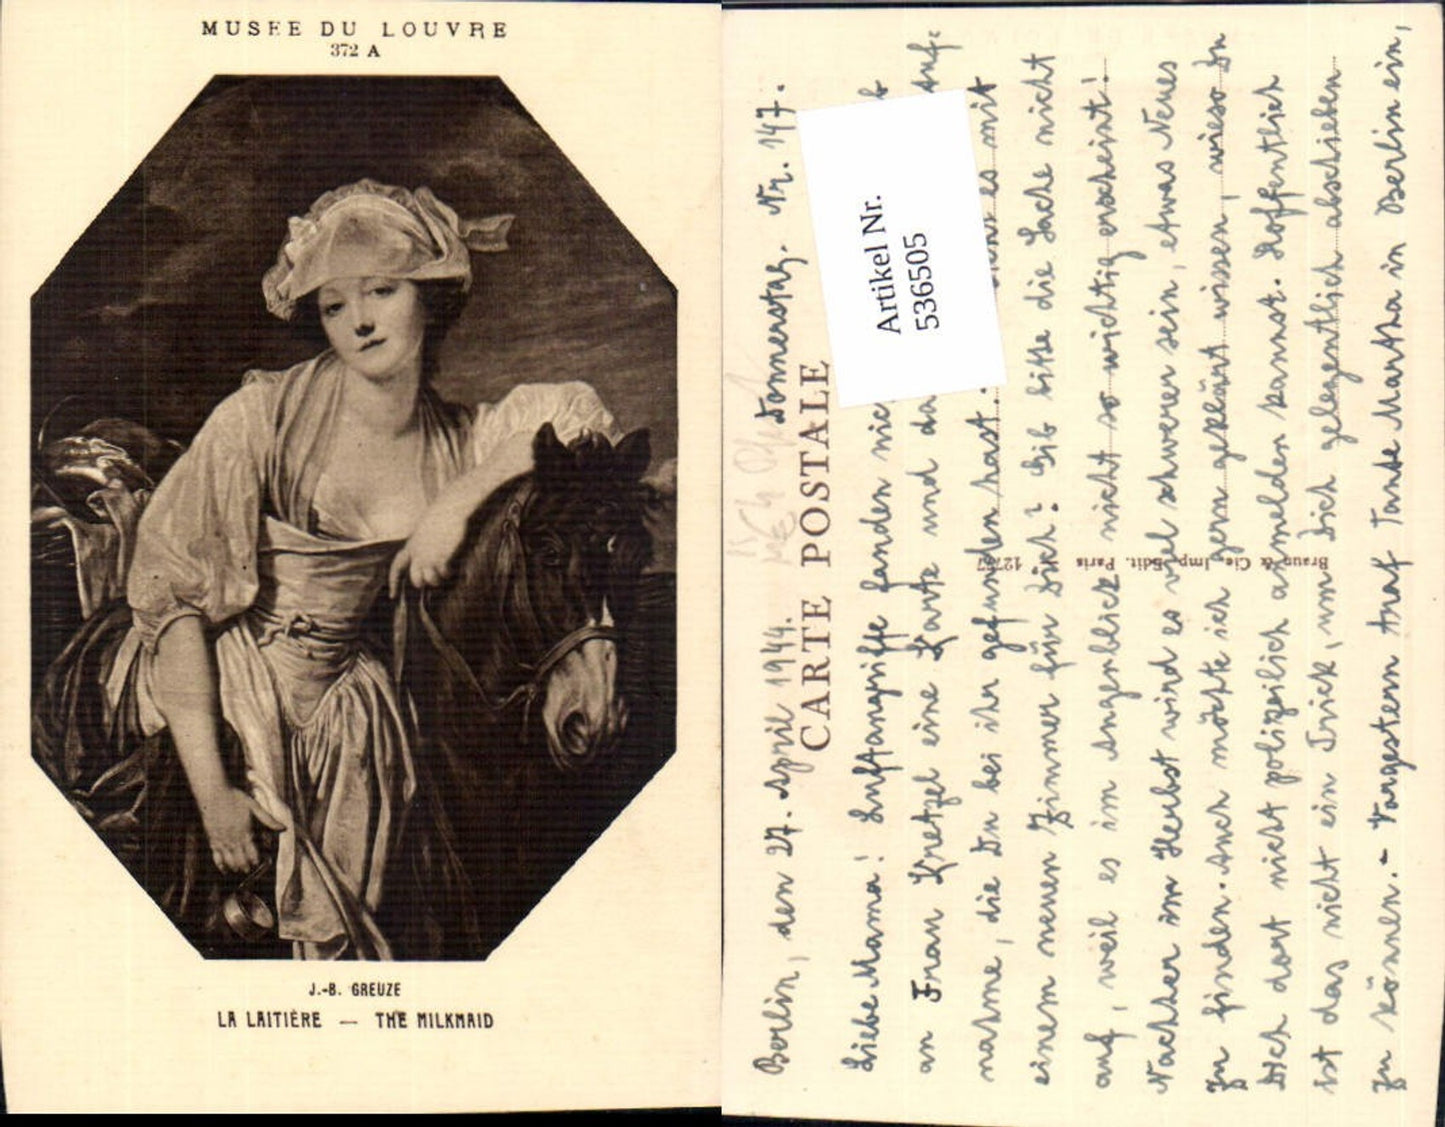 MUSEE DU LOUVRE
372 A
J.-B. GREUZE
LA LAITIÈRE — THE MILKMAID
Berlin, den 27. April 1944. Donnerstag. Nr. 147.
CARTE POSTALE
Artikel Nr.
536505
Liebe Mama! Luftangriffe fanden
an Frau Kretzel eine Karte und
nahme, die Du bei ihr gefunden hast. es mit
einem neuen Zimmer für Dich? Gib bitte die Sache nicht
auf, weil es im Augenblick nicht so wichtig erscheint!
Nachher im Herbst wird es viel schwerer sein, etwas Neues
zu finden. Auch möchte ich gern geklärt wissen, wieso Du
Dich dort nicht polizeilich anmelden kannst. Hoffentlich
ist das nicht ein Trick, um Dich gelegentlich abschieben
zu können. - Vorgestern traf Tante Martha in Berlin ein,
Braun & Cie, Imp. Edit. Paris